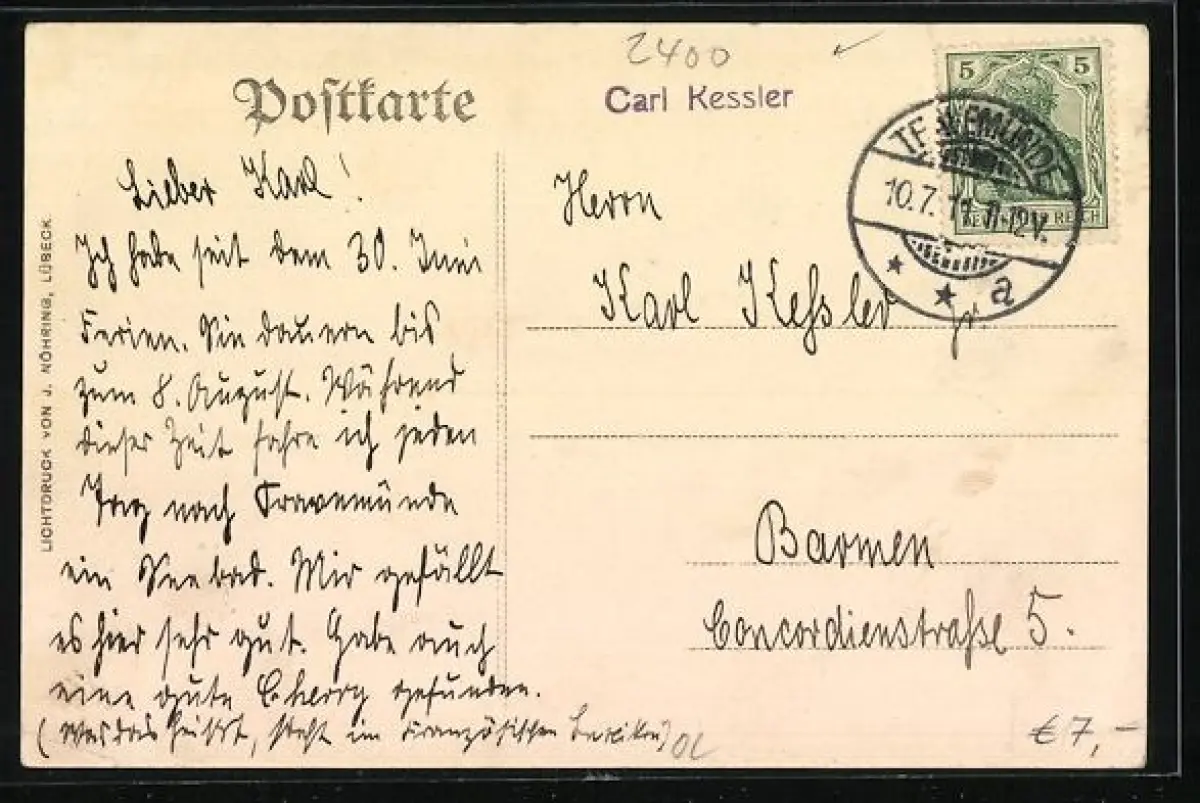 2400
Postkarte
Carl Kessler
5 5
TRAVEMÜNDE
10.7.11. 11-12V.
REICH
* * a
LICHTDRUCK VON J. NÖHRING, LÜBECK.
Lieber Karl!
Ich habe seit dem 30. Juni
Ferien. Sie dauern bis
zum 8. August. Während
dieser Zeit fahre ich jeden
nach Travemünde
ein Seebad. Mir gefällt
es hier sehr gut. Habe auch
eine gute gefunden.
(Was das heißt, steht im Französischen Lexikon)
Herrn
Karl Kessler jr.
Barmen
Concordienstraße 5.
€ 7,-